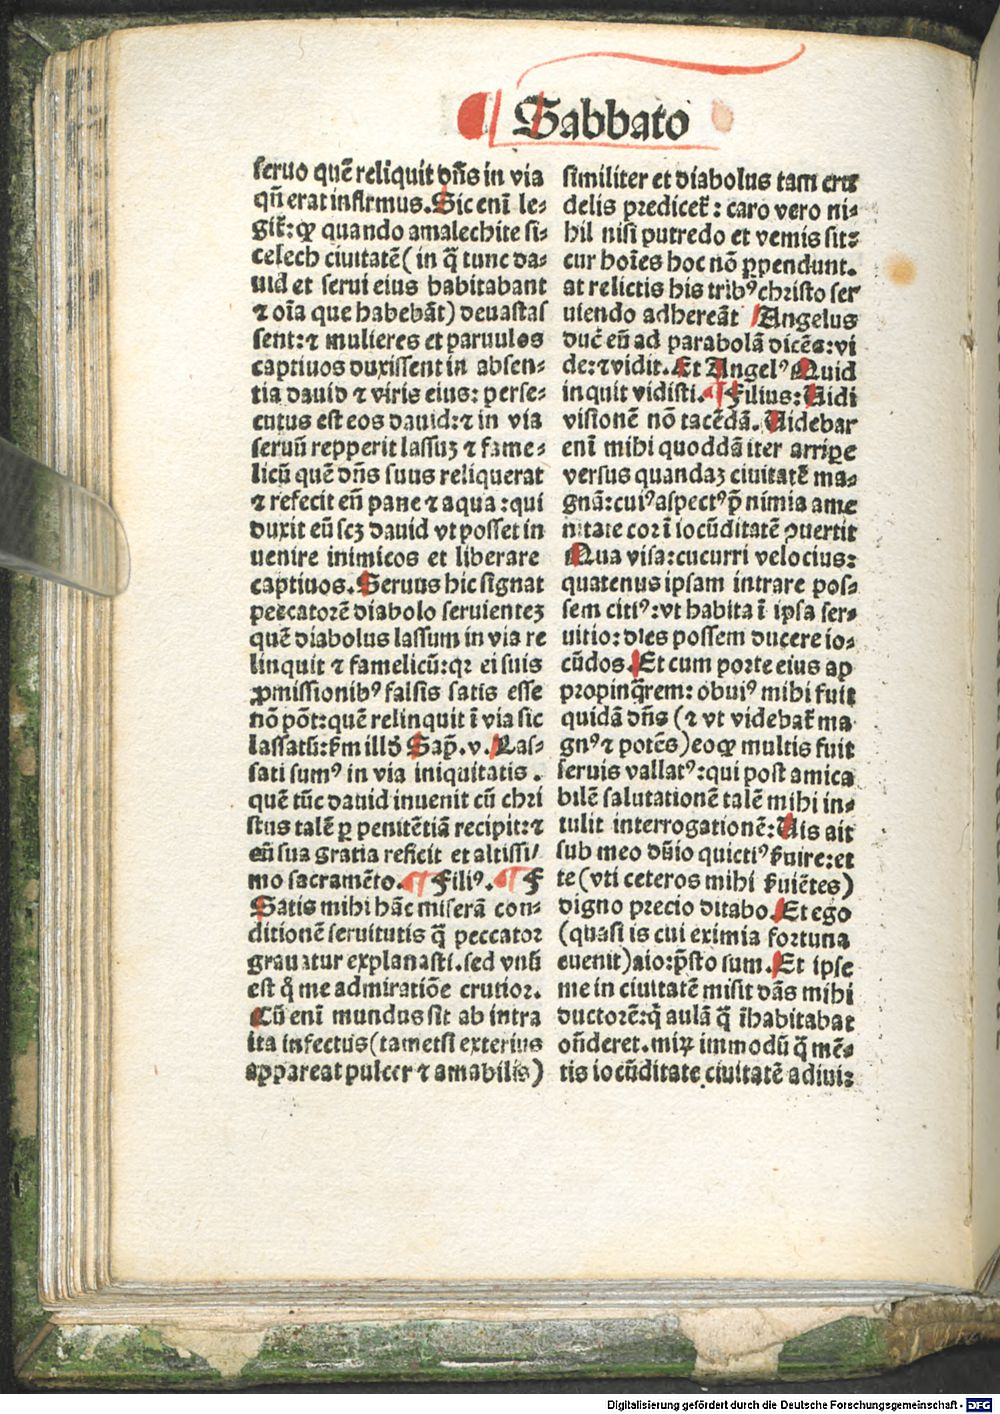 Sabbato
seruo quē reliquit dn̄s in via
qn̄ erat infirmus. Sic enī le⸗
git᷑: ꝙ quando amalechite si⸗
celech ciuitatē (in q̄ tunc da⸗
uid et serui eius habitabant
⁊ oīa que habebāt) deuastas
sent: ⁊ mulieres et paruulos
captiuos duxissent in absen⸗
tia dauid ⁊ viris eius: perse⸗
cutus est eos dauid: ⁊ in via
seruū repperit lassuꝫ ⁊ fame⸗
licū quē dn̄s suus reliquerat
⁊ refecit eū pane ⁊ aqua: qui
duxit eū scꝫ dauid vt posset in
uenire inimicos et liberare
captiuos. Seruus hic signat
peccatorē diabolo seruienteꝫ
quē diabolus lassum in via re
linquit ⁊ famelicū: qꝛ ei suis
ꝓmissionibꝰ falsis satis esse
nō pōt: quē relinquit ī via sic
lassatū: ẜm illđ Sap̄. v. Las⸗
sati sumꝰ in via iniquitatis.
quē tūc dauid inuenit cū chri
stus talē ꝑ penitētiā recipit: ⁊
eū sua gratia reficit et altissi/
mo sacramēto. ¶ Filiꝰ. ¶ F
Satis mihi hāc miserā con⸗
ditionē seruitutis q̄ peccator
grauatur explanasti. sed vnū
est qͦ me admiratiōe crutior.
Cū enī mundus sit ab intra
ita infectus (tametsi exterius
appareat pulcer ⁊ amabilis)
similiter et diabolus tam cru
delis predicet᷑: caro vero ni⸗
hil nisi putredo et vemis sit:
cur hoīes hoc nō ꝑpendunt.
at relictis his tribꝰ christo ser
uiendo adhereāt Angelus
duc̄ eū ad parabolā dicēs: vi
de: ⁊ vidit. Et Angelꝰ Quid
inquit vidisti. ¶ Filius: Uidi
visionē nō tacēdā. Uidebar
enī mihi quoddā iter arripe
versus quandaꝫ ciuitatē ma⸗
gnā: cuiꝰ aspectꝰ p̄ nimia ame
nitate cor ī iocūditatē ꝯuertit
Qua visa: cucurri velocius:
quatenus ipsam intrare pos⸗
sem citiꝰ: vt habita ī ipsa ser⸗
uitio: dies possem ducere io⸗
cūdos. Et cum porte eius ap
propinq̄rem: obuiꝰ mihi fuit
quidā dn̄s (⁊ vt videbat᷑ ma
gnꝰ ⁊ potēs) eoꝙ multis fuit
seruis vallatꝰ: qui post amica
bilē salutationē talē mihi in⸗
tulit interrogationē: Uis ait
sub meo dn̄io quietiꝰ ẜuire: et
te (vti ceteros mihi ẜuiētes)
digno precio ditabo. Et ego
(quasi is cui eximia fortuna
euenit) aio: p̄sto sum. Et ipse
me in ciuitatē misit dās mihi
ductorē: q̄ aulā q̄ īhabitabat
on̄deret. miꝝ immodū q̄ mē⸗
tis iocūditate ciuitatē adiui:
Digitalisierung gefördert durch die Deutsche Forschungsgemeinschaft - DFG